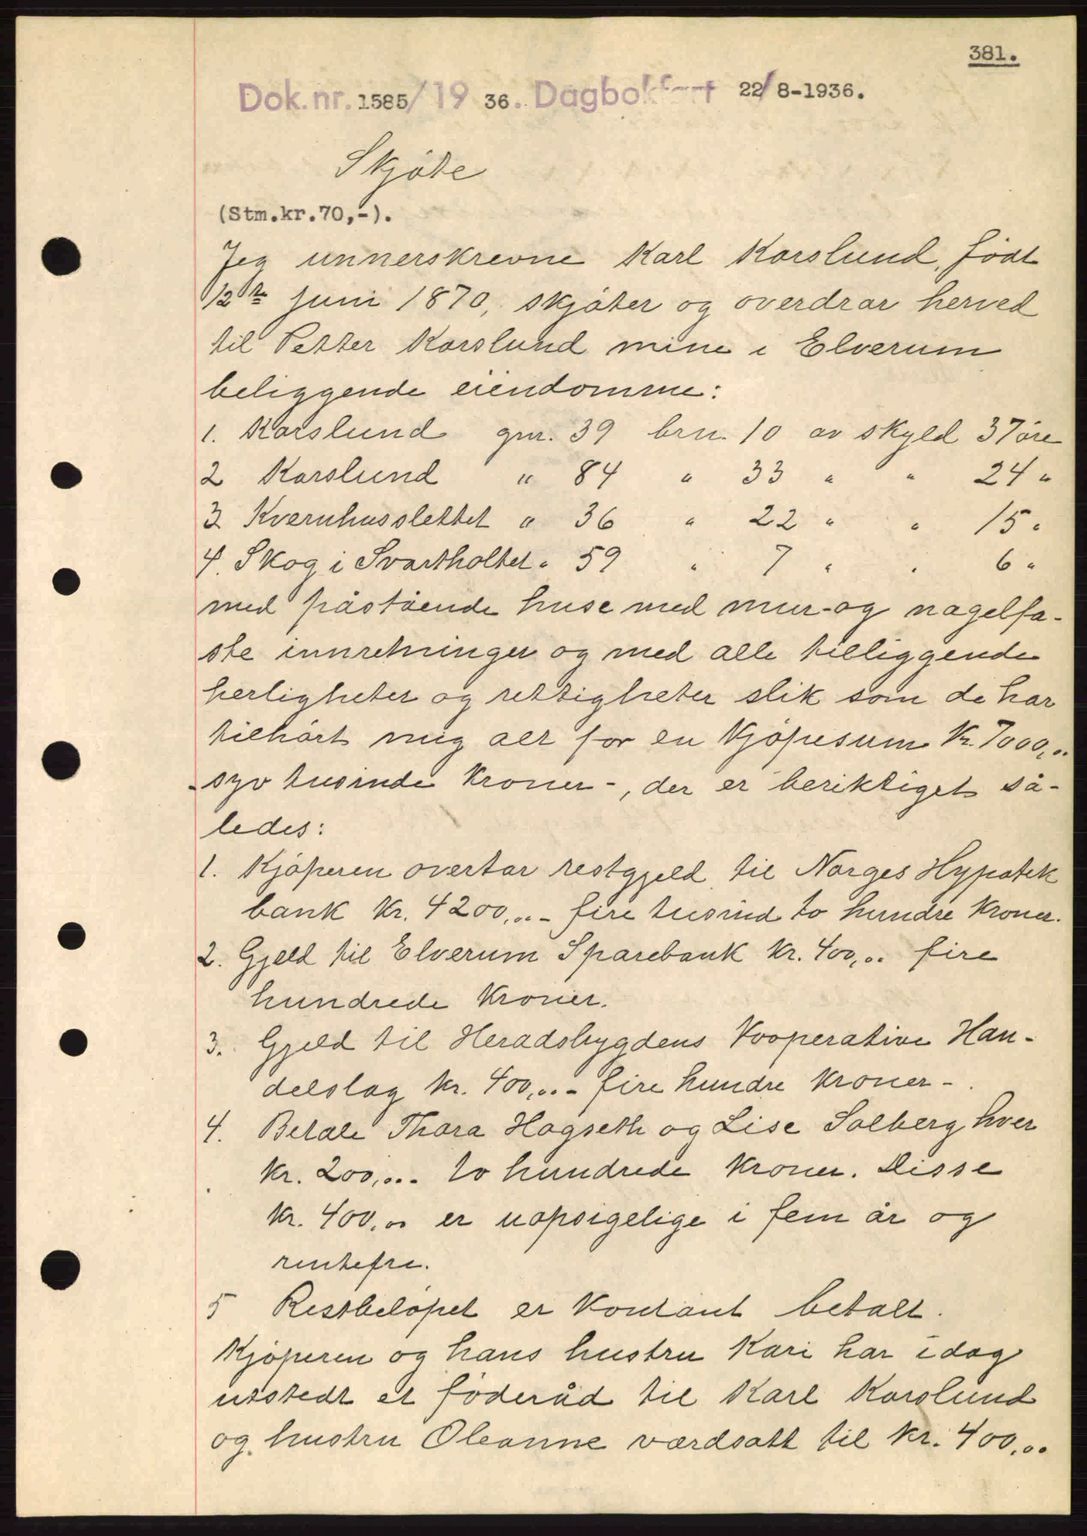 381.
Dok.nr. 1585/19 36. Dagbokført 22/8-1936.
Skjøte
(Stm.kr.70,-).
Jeg unnerskrevne Karl Karslund, født
12te juni 1870, skjøter og overdrar herved
til Petter Karslund mine i Elverum
beliggende eiendomme:
1. Karslund gnr. 39 brn. 10 av skyld 37 øre
2 Karslund " 84 " 33 " " 24 "
3. Kvernhusslettet " 36 " 22 " " 15 "
4. Skog i Svartholtet " 59 " 7 " " 6 "
med påstående huse med mur- og nagelfa-
ste innretninger og med alle tilliggende
herligheter og rettigheter slik som de har
tilhørt mig alt for en kjøpesum Kr. 7000,..
- syv tusinde kroner -, der er beriktiget så-
ledes:
1. Kjøperen overtar restgjeld til Norges Hypotek
bank kr. 4200,.. - fire tusind to hundre kroner.
2. Gjeld til Elverum Sparebank kr. 400,.. fire
hundrede kroner.
3. Gjeld til Heradsbygdens Kooperative Han-
delslag kr. 400,.. - fire hundre kroner -.
4. Betale Thora Hagseth og Lise Solberg hver
kr. 200,.. - to hundrede kroner. Disse
kr. 400,.. er uopsigelige i fem år og
rentefri.
5 Restbeløpet er kontant betalt.
Kjøperen og hans hustru Kari har idag
utstedt et føderåd til Karl Karslund
og hustru Oleanne værdsatt til kr. 400,..